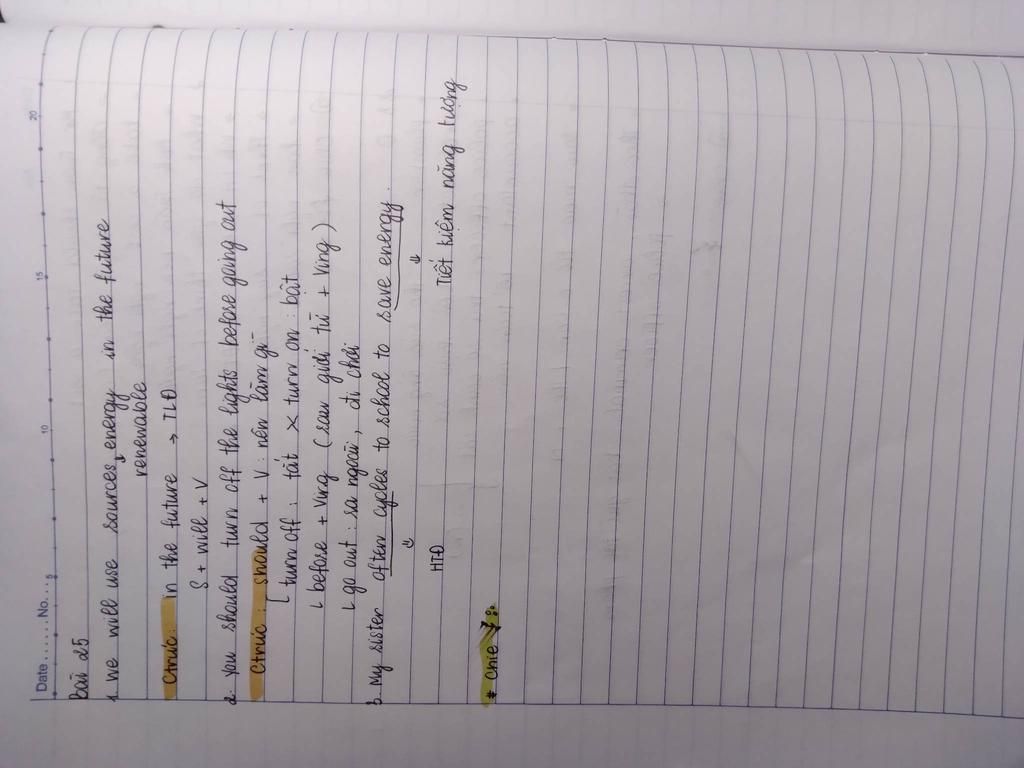 Date ......No....
5 10 15 20
Bài 25
1. We will use sources energy in the future
renewable
Ctrúc: In the future → TLĐ
S + will + V
2. You should turn off the lights before going out
Ctrúc: should + V: nên làm gì
turn off: tắt × turn on: bật
before + Ving (sau giới từ + Ving)
go out: ra ngoài, đi chơi
3. My sister often cycles to school to save energy.
HTĐ
Tiết kiệm năng lượng